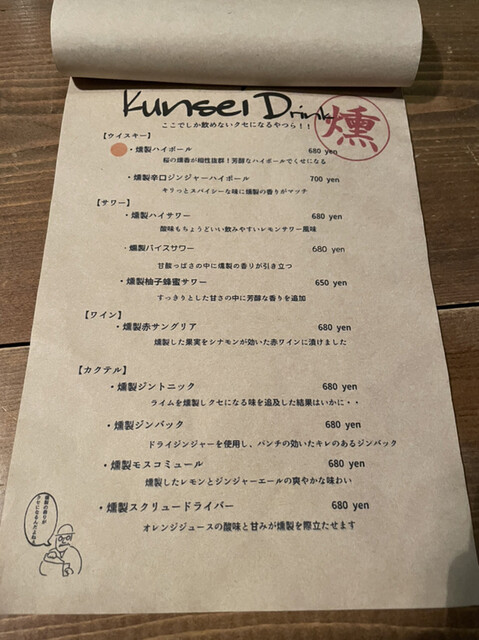 Kunsei Drink
燻
ここでしか飲めないクセになるやつら！！
【ウイスキー】
・燻製ハイボール 680 yen
桜の燻香が相性抜群！芳醇なハイボールでくせになる
・燻製辛口ジンジャーハイボール 700 yen
キリっとスパイシーな味に燻製の香りがマッチ
【サワー】
・燻製ハイサワー 680 yen
酸味もちょうどいい飲みやすいレモンサワー風味
・燻製バイスサワー 680 yen
甘酸っぱさの中に燻製の香りが引き立つ
・燻製柚子蜂蜜サワー 650 yen
すっきりとした甘さの中に芳醇な香りを追加
【ワイン】
・燻製赤サングリア 680 yen
燻製した果実をシナモンが効いた赤ワインに漬けました
【カクテル】
・燻製ジントニック 680 yen
ライムを燻製しクセになる味を追及した結果はいかに・・
・燻製ジンバック 680 yen
ドライジンジャーを使用し、パンチの効いたキレのあるジンバック
・燻製モスコミュール 680 yen
燻製したレモンとジンジャーエールの爽やかな味わい
・燻製スクリュードライバー 680 yen
オレンジジュースの酸味と甘みが燻製を際立たせます
燻製の香りが
クセになるんだよねぇ